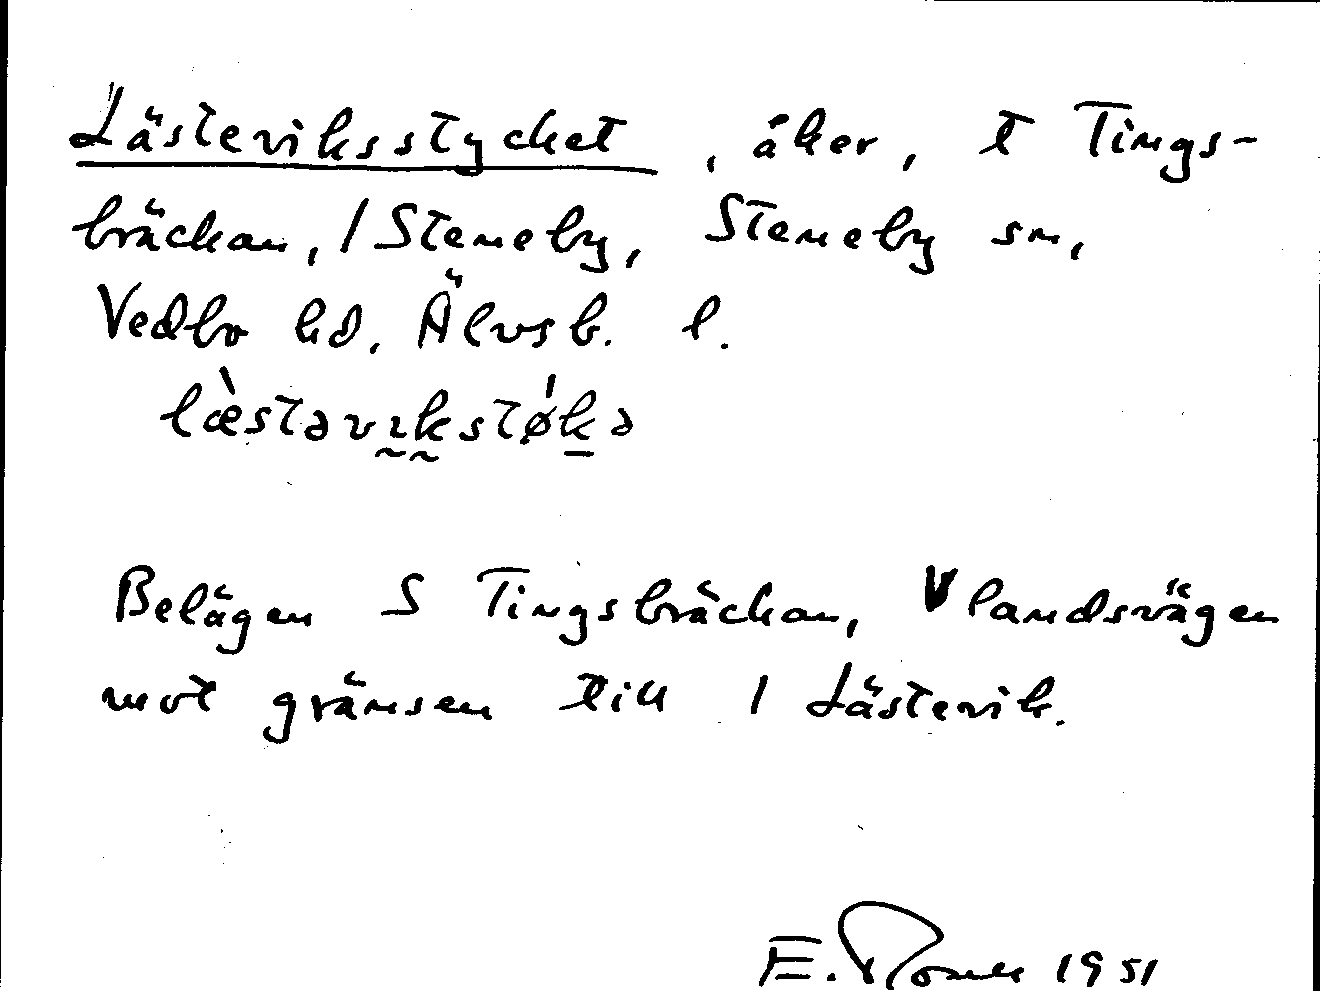 Lästeviksstycket, åker, t Tings-
bräckan, / Steneby, Steneby sn,
Vedbo hd, Älvsb. l.
læ̀stəvıkstø̍kə
Belägen S Tingsbräckan, V landsvägen
mot gränsen till / Lästevik.
E. 1951